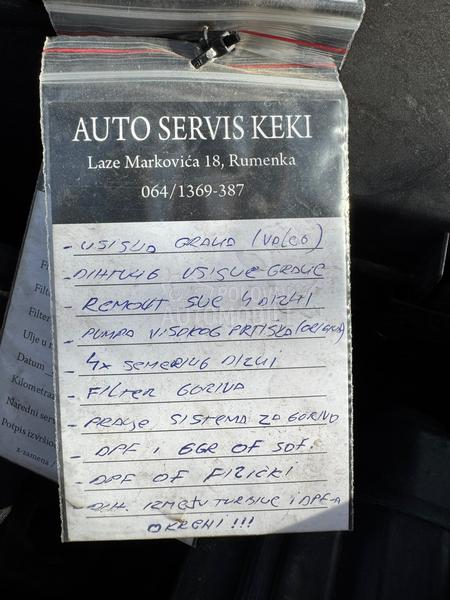 AUTO SERVIS KEKI
Laze Markovića 18, Rumenka
064/1369-387
- USISNA GRANA (VALEO)
- DIHTUNG USISNE GRANE
- REMONT SVE 4 DIZNI
- PUMPA VISOKOG PRITISKA (
- 4X SEMERING DIZNI
- FILTER GORIVA
- PRANJE SISTEMA ZA GORIVO
- DPF i EGR OF SOF.
- DPF OF FIZICKI
- DIH. IZMEĐU TURBINE i DPF-A
OKRENI!!!
Filter
Ulje u
Datum
Kilometraž
Naredni serv
Potpis izvršio
x-zamena /